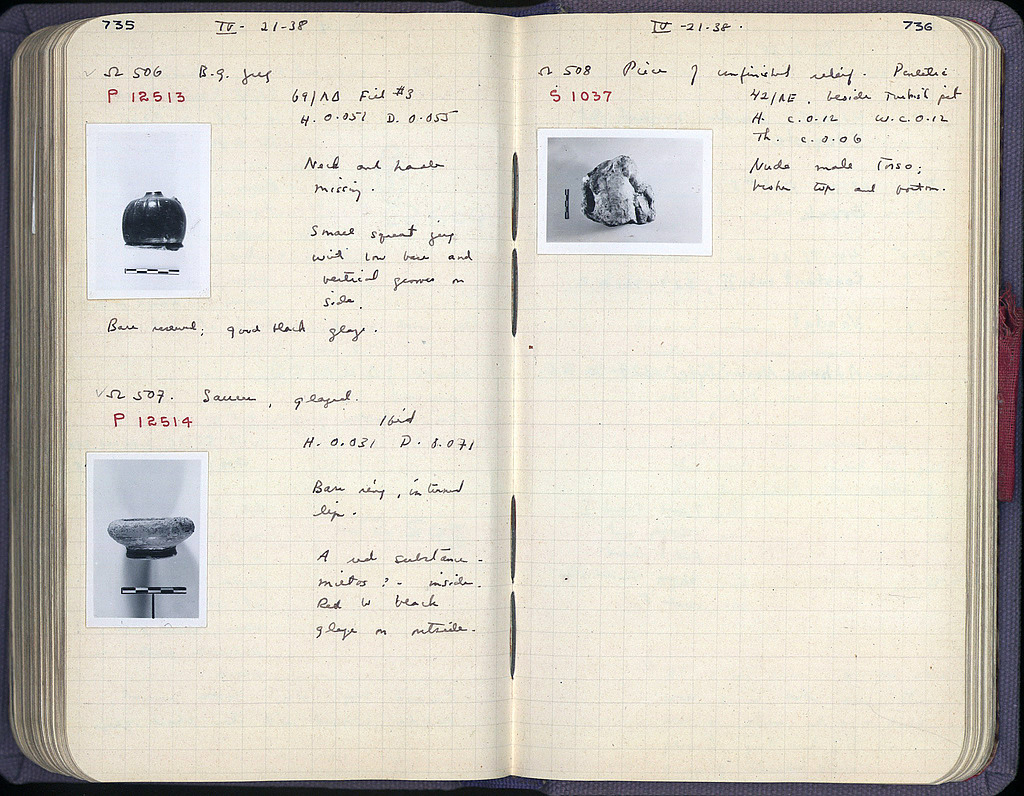 735
IV - 21-38
Ω 506 B.g. jug
P 12513
69/ΛΔ Fill #3
H. 0.051 D. 0.055
Neck and handle
missing.
Small squat jug
with low base and
vertical grooves on
side.
Base reserved; good black glaze.
Ω 507. Saucer, glazed.
P 12514
Ibid
H. 0.031 D. 0.071
Base ring, in turned
lip.
A red substance -
miltos? - inside.
Red to black
glaze on outside.
IV -21-38.
736
Ω 508 Piece of unfinished relief. Pentelic
S 1037
42/ΛΕ, beside Turkish pit
H. c. 0.12 W. c. 0.12
Th. c. 0.06
Nude male Torso;
broken top and bottom.